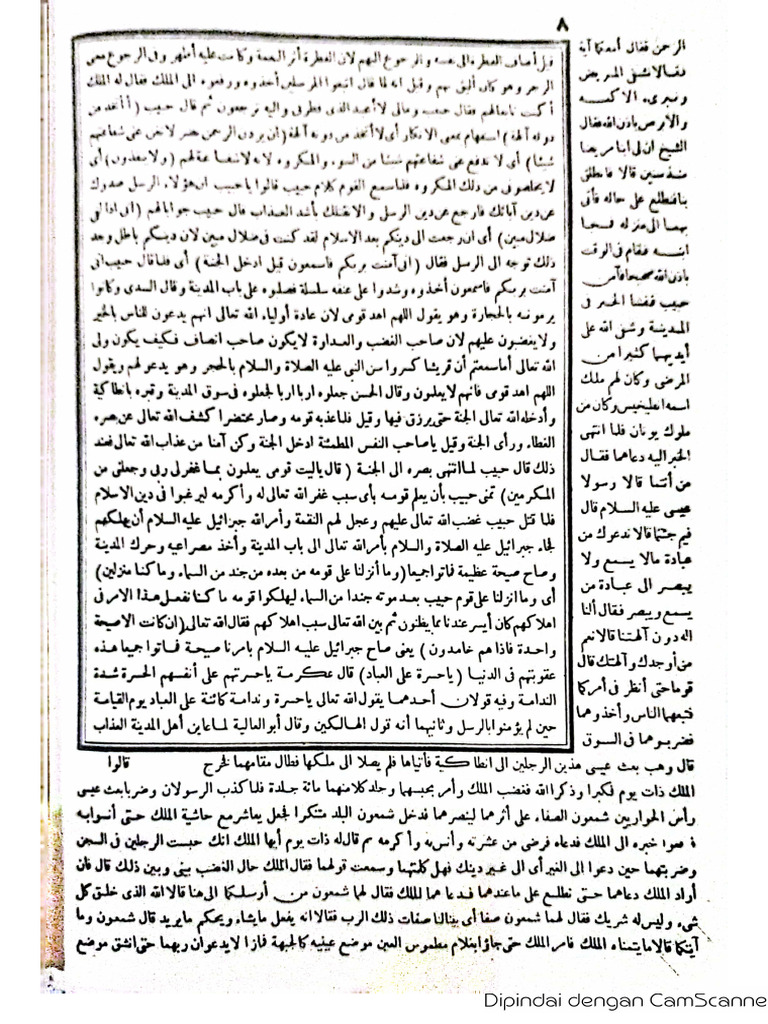 ٨
قيل أضاف الفطرة الى نفسه والرجوع اليهم لان الفطرة أثر النعمة وكانت عليه أظهر وفى الرجوع معنى
الزجر وهو كان أليق بهم وقيل انه لما قال اتبعوا المرسلين أخذوه ورفعوه الى الملك فقال له الملك
أكنت تابعالهم فقال حبيب ومالى لاأعبد الذى فطرنى واليه ترجعون ثم قال حبيب (أأتخذ من
دونه آلهة) استفهام بمعنى الانكار أى لاأتخذ من دونه آلهة (ان يردن الرحمن بضر لا تغن عنى شفاعتهم
شيئا) أى لا تدفع عنى شفاعتهم شيئا من السوء والمكروه لانه لاشفاعة لهم (ولا ينقذون) أى
لايخلصونى من ذلك المكروه فلما سمع القوم كلام حبيب قالوا ياحبيب ان هؤلاء الرسل صدوك
عن دين آبائك فارجع عن دين الرسل والانقتلك بأشد العذاب قال حبيب جوابالهم (انى اذا لفى
ضلال مبين) أى ان رجعت الى دينكم بعد الاسلام لقد كنت فى ضلال مبين لان دينكم باطل وبعد
ذلك توجه الى الرسل فقال (انى آمنت بربكم فاسمعون قيل ادخل الجنة) أى فلما قال حبيب انى
آمنت بربكم فاسمعون أخذوه وشدوا على عنقه سلسلة فصلبوه على باب المدينة وقال السدى وكانوا
يرمونه بالحجارة وهو يقول اللهم اهد قومى لان عادة أولياء الله تعالى انهم يدعون للناس بالخير
ولا يغضبون عليهم لان صاحب الغضب والعداوة لايكون صاحب انصاف فكيف يكون ولى
الله تعالى أماسمعتم أن قريشا كسروا سن النبى عليه الصلاة والسلام بالحجر وهو يدعو لهم ويقول
اللهم اهد قومى فانهم لا يعلمون وقال الحسن جعلوه اربا اربا لجعلوه فى سوق المدينة وقبره بانطاكية
وأدخله الله تعالى الجنة حتى يرزق فيها وقيل فلما عذبه قومه وصار محتضرا كشف الله تعالى عن بصره
الغطاء ورأى الجنة وقيل ياصاحب النفس المطمئنة ادخل الجنة وكن آمنا من عذاب الله تعالى فعند
ذلك قال حبيب لما انتهى بصره الى الجنة (قال ياليت قومى يعلمون بما غفر لى ربى وجعلنى من
المكرمين) تمنى حبيب بأن يعلم قومه بأى سبب غفر الله تعالى له وأكرمه ليرغبوا فى دين الاسلام
فلما قتل حبيب غضب الله تعالى عليهم وعجل لهم النقمة وأمر الله جبرائيل عليه السلام أن يهلكهم
لجاء جبرائيل عليه الصلاة والسلام بأمر الله تعالى الى باب المدينة وأخذ مصراعيه وحرك المدينة
وصاح صيحة عظيمة فاتوا جميعا (وما أنزلنا على قومه من بعده من جند من السماء وما كنا منزلين)
أى وما انزلنا على قوم حبيب بعد موته جندا من السماء ليهلكوا قومه ما كنا نفعل هذا الامر فى
اهلاكهم كان أيسر عندنا مما يظنون ثم بين الله تعالى سبب اهلاكهم فقال الله تعالى (ان كانت الاصيحة
واحدة فاذا هم خامدون) يعنى صاح جبرائيل عليه السلام بامرنا صيحة فماتوا جميعا هذه
عقوبتهم فى الدنيا (ياحسرة على العباد) قال عكرمة ياحسرتهم على أنفسهم الحسرة شدة
الندامة وفيه قولان أحدهما يقول الله تعالى ياحسرة وندامة كائنة على العباد يوم القيامة
حين لم يؤمنوا بالرسل وثانيهما أنه قول الهالكين وقال أبو العالية لما عاين أهل المدينة العذاب
قالوا
الرحمن فقال أمعكما آية
فقالا نشفى المريض
ونبرئ الاكمه
والابرص باذن الله فقال
الشيخ ان لى ابنا مريضا
منذ سنين قالا فانطلق
بنا نطلع على حاله فأتى
بهما الى منزله فمسحا
ابنه فقام فى الوقت
باذن الله صحيحا فآمن
حبيب ففشا الخبر فى
المدينة وشفى الله على
أيديهما كثيرا من
المرضى وكان لهم ملك
اسمه انطيخيس وكان من
ملوك يونان فلما انتهى
الخبر اليه دعاهما فقال
من أنتما قالا رسولا
عيسى عليه السلام قال
فيم جئتما قالا ندعوك من
عبادة مالا يسمع ولا
يبصر الى عبادة من
يسمع ويبصر فقال ألنا
اله دون آلهتنا قالا نعم
من أوجدك وآلهتك قال
قوما حتى أنظر فى أمركما
فتبعهما الناس وأخذوهما
فضربوهما فى السوق
قال وهب بعث عيسى هذين الرجلين الى انطاكية فأتياها فلم يصلا الى ملكها فطال مقامهما فخرج
الملك ذات يوم فكبرا وذكرا الله فغضب الملك وأمر بحبسهما وجلد كلا منهما مائة جلدة فلما كذب الرسولان وضربا بعث عيسى
رأس الحواريين شمعون الصفاء على أثرهما لينصرهما فدخل شمعون البلد متنكرا لجعل يعاشر مع حاشية الملك حتى أنسوا به
فرفعوا خبره الى الملك فدعاه فرضى من عشرته وأنس به وأكرمه ثم قال له ذات يوم أيها الملك انك حبست الرجلين فى السجن
وضربتهما حين دعوا الى الغير أى الى غير دينك فهل كلمتهما وسمعت قولهما فقال الملك حال الغضب بينى وبين ذلك قال فان
أراد الملك دعاهما حتى نطلع على ما عندهما فدعاهما الملك فقال لهما شمعون من أرسلكما الى هنا قالا الله الذى خلق كل
شىء وليس له شريك فقال لهما شمعون صفا أى بينا لنا صفات ذلك الرب فقالا انه يفعل ما يشاء ويحكم ما يريد قال شمعون وما
آيتكما قالا ما يتمناه الملك فامر الملك حتى جاؤا بغلام مطموس العين موضع عينيه كالجبهة فمازالا يدعوان ربهما حتى انشق موضع
Dipindai dengan CamScanne